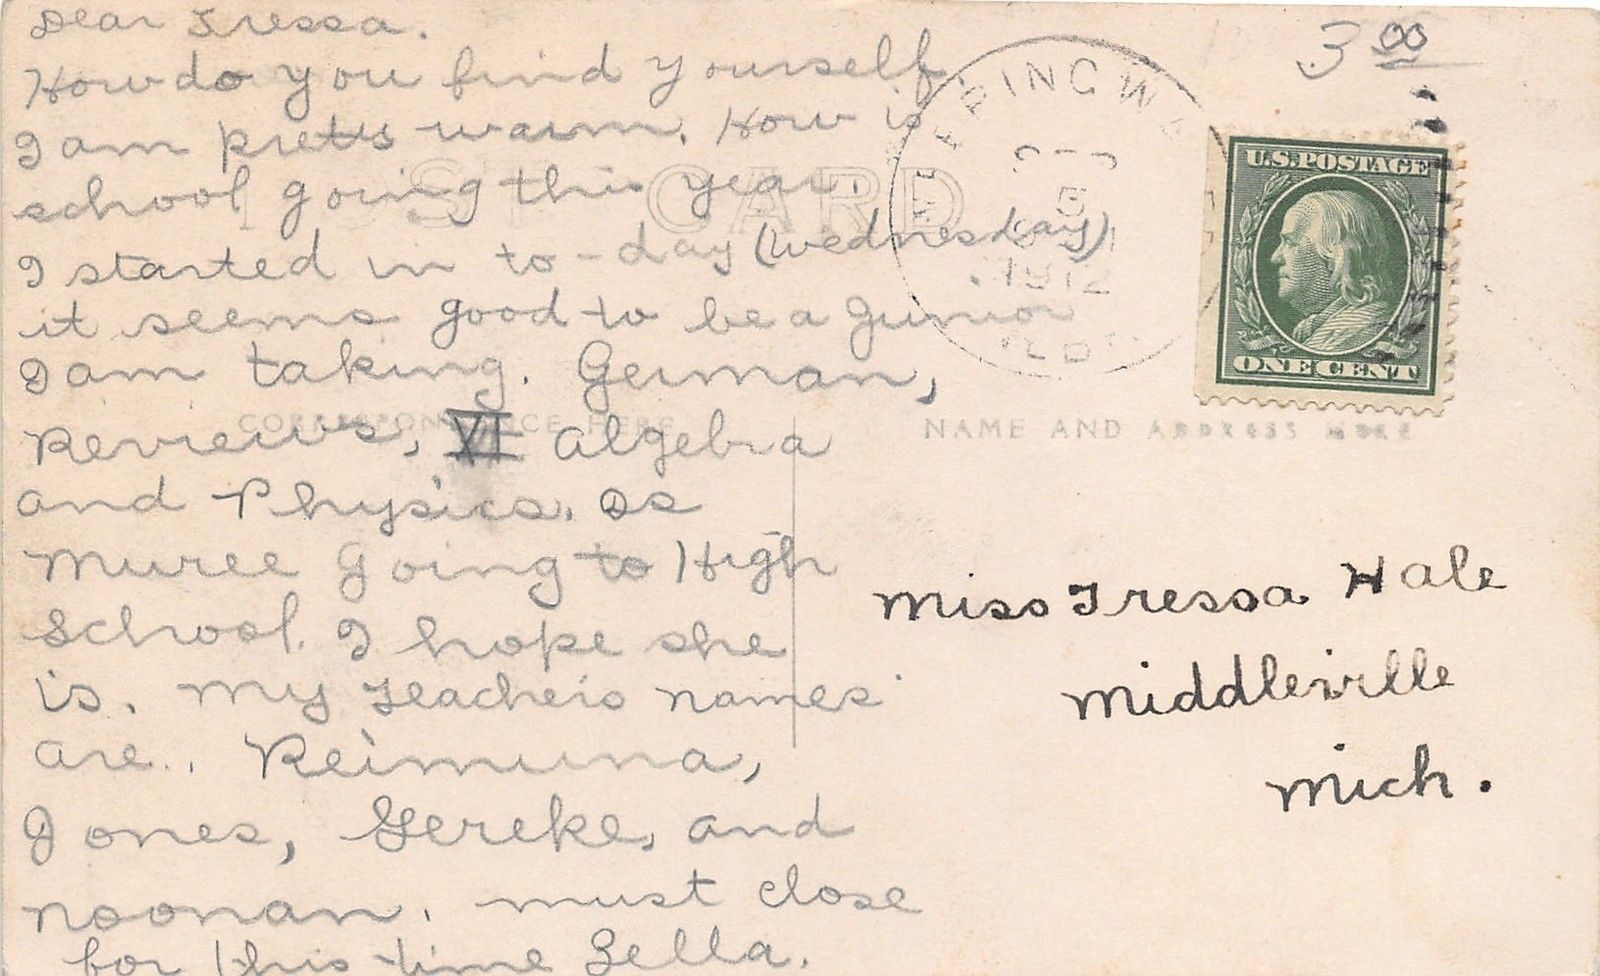 Dear Tressa.
How do you find yourself
I am pretty warm. How is
school going this year.
I started in to-day (Wednesday)
it seems good to be a Junior
I am taking. German,
Reviews, VI algebra
and Physics. Is
Muree going to High
School. I hope she
is. My teachers names
are.. Reimuna,
Jones, Gereke, and
Noonan. must close
for this time Zella.
POST CARD
CORRESPONDENCE HERE
NAME AND ADDRESS HERE
3 00
EEPING W
1912
U.S. POSTAGE
ONE CENT
Miss Tressa Hale
Middleville
Mich.